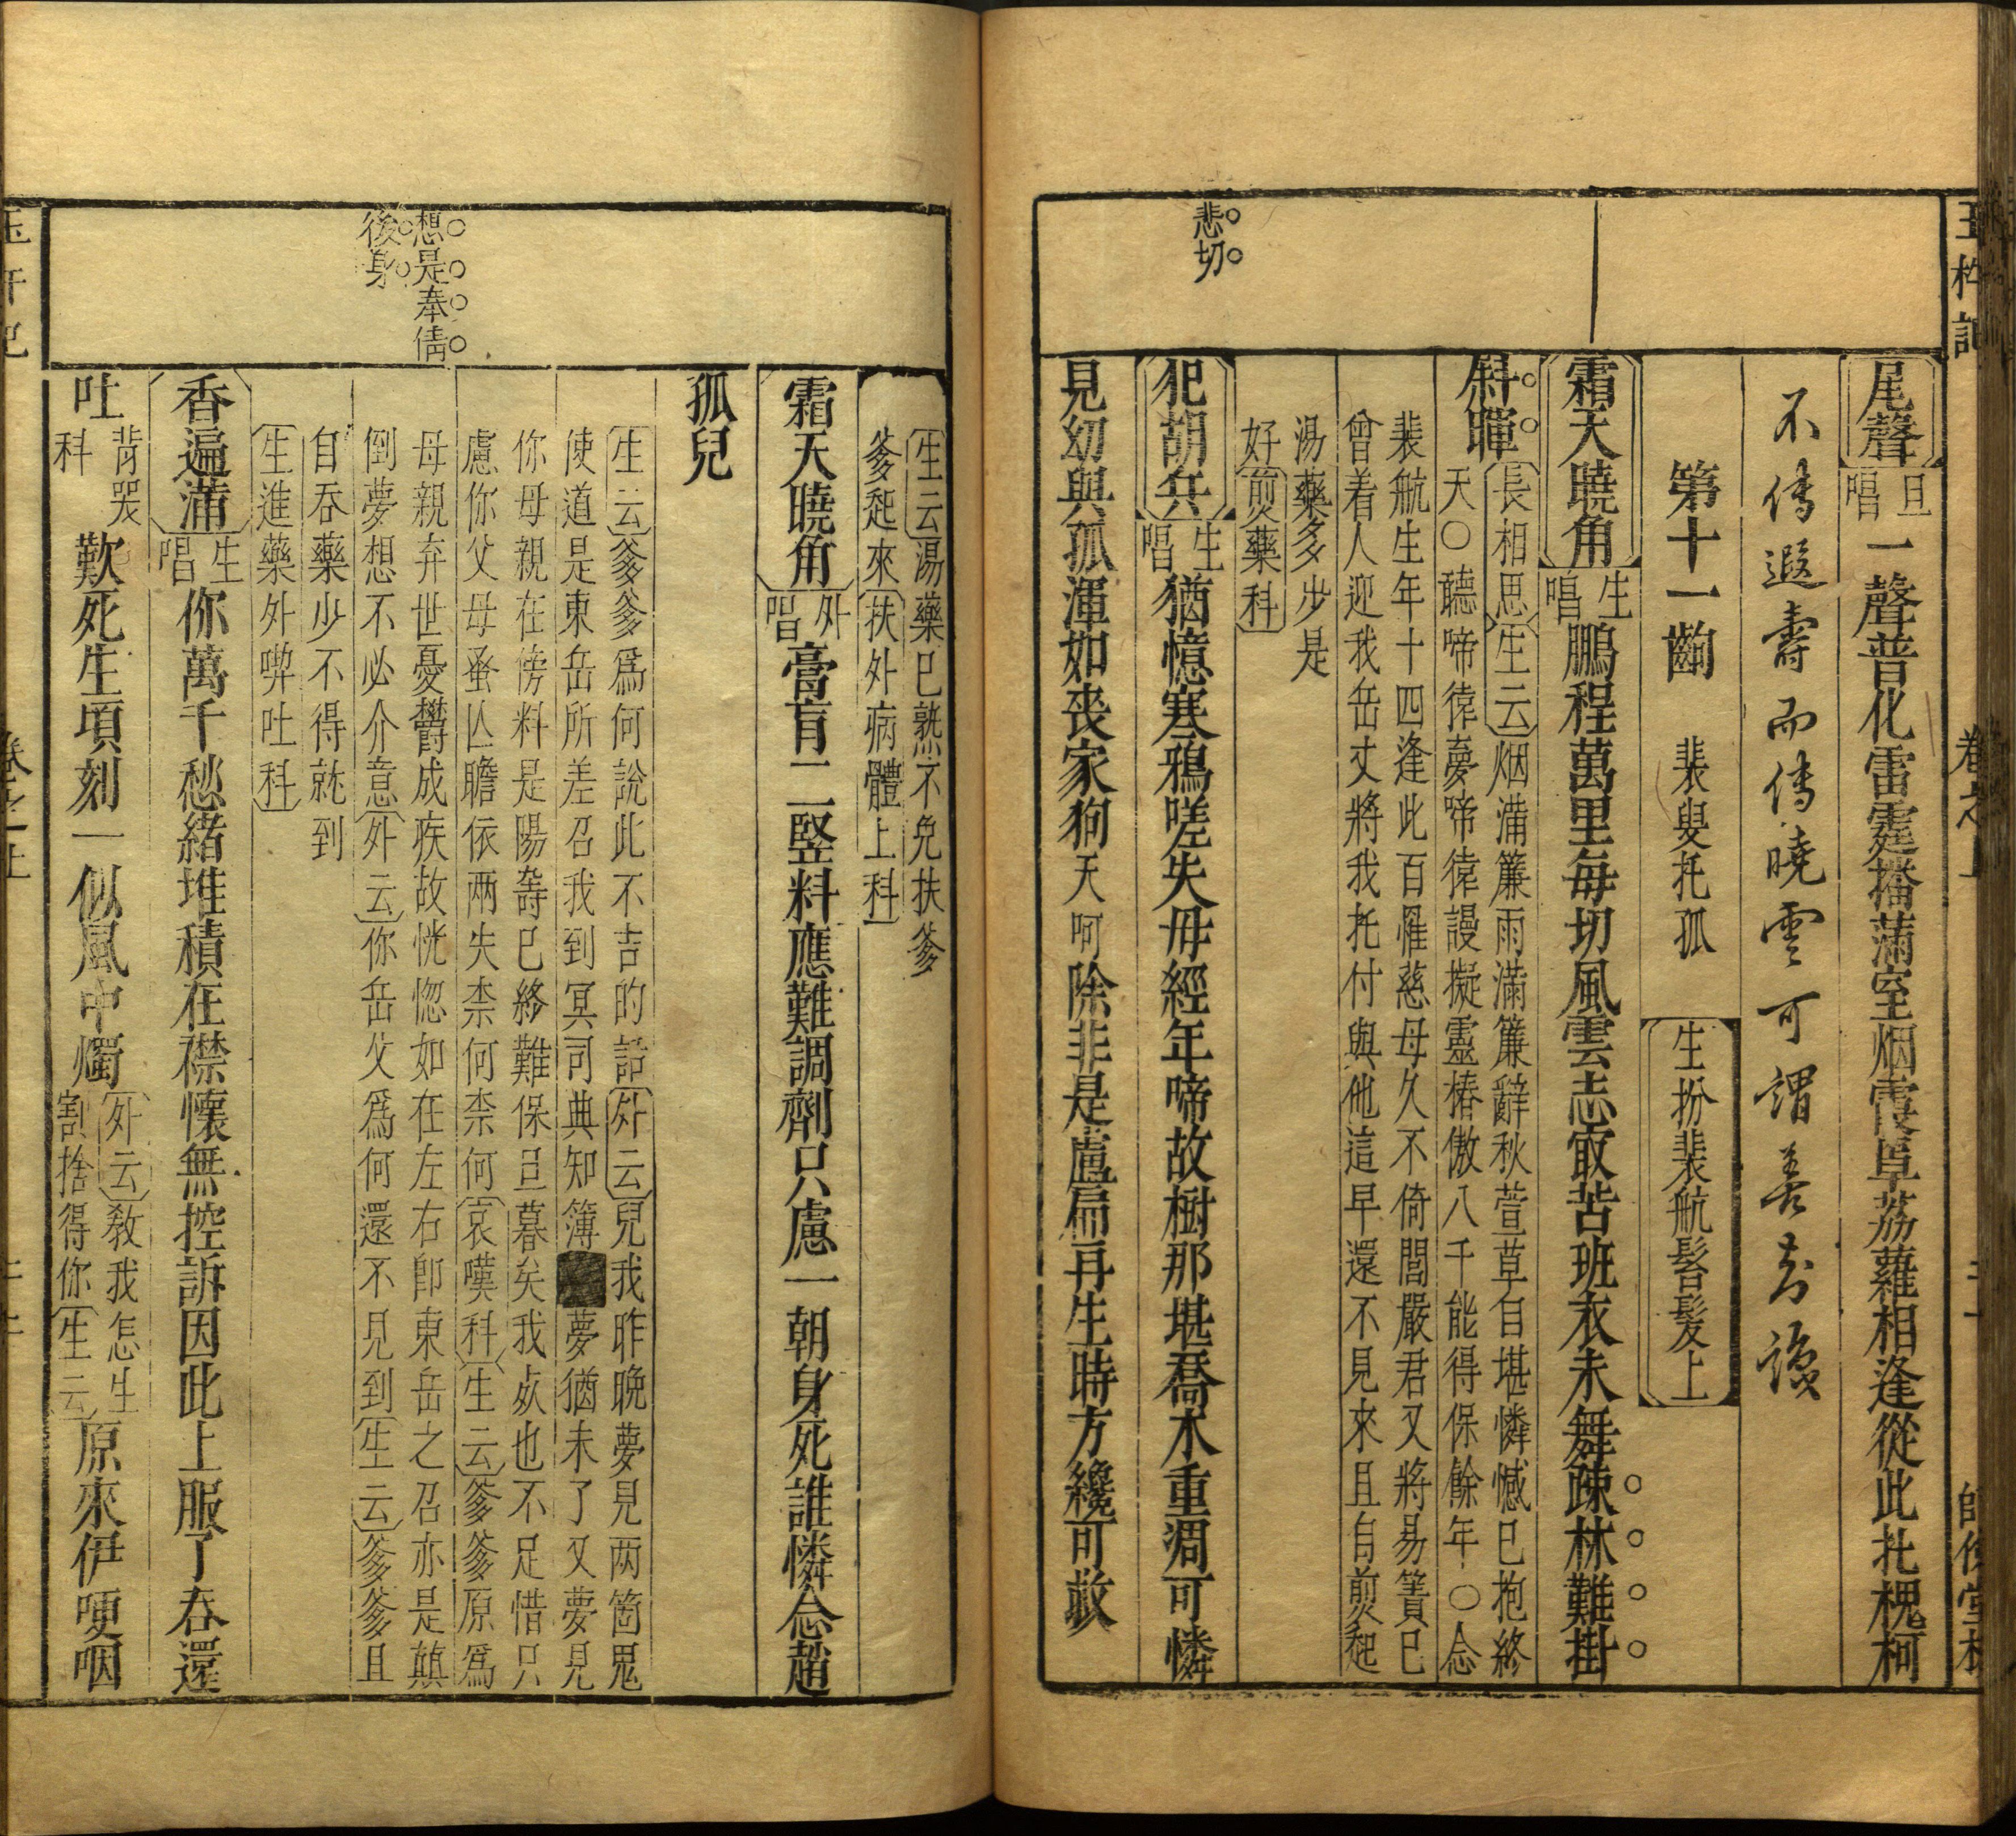 玉杵記
卷之上
悲切
尾聲旦唱一聲普化雷霆播滿室烟霞阜荔蘿相逢從此托槐柯
不傳遐壽而傳曉雲可謂善於
第十一齣 裴叟托孤 生扮裴航髻髮上
霜天曉角生唱鵬程萬里每切風雲志㝡苦班衣未舞疎林難掛
斜暉長相思生云烟滿簾雨滿簾辭秋萱草自堪憐憾已抱終
天○聽啼㣫憂啼㣫謾擬靈椿傲八千能得保餘年○念
裴航生年十四逢此百罹慈母久不倚閭嚴君又將易簀已
曾着人迎我岳丈將我托付與他這早還不見來且自煎起
湯藥多少是
好煎藥科
犯胡兵生唱猶憶寒鴉嗟失母經年啼故樹那堪喬木重凋可憐
見幼與孤渾如喪家狗天呵除非是盧扁再生時方纔可救
想是奉倩
後身
生云湯藥已熟不免扶爹
爹起來扶外病體上科
霜天曉角外唱膏肓二竪料應難調劑只慮一朝身死誰憐念趙
孤兒
生云爹爹爲何說此不吉的話外云兒我昨晚夢見两箇鬼
使道是東岳所差召我到冥司典知簿夢猶未了又夢見
你母親在傍料是陽壽已終難保旦暮矣我死也不足惜只
慮你父母蚤亾瞻依两失柰何柰何哀嘆科生云爹爹原爲
母親弃世憂欝成疾故恍惚如在左右卽東岳之召亦是顛
倒夢想不必介意外云你岳父爲何還不見到生云爹爹且
自吞藥少不得就到
生進藥外喫吐科
香遍滿生唱你萬千愁緒堆積在襟懷無控訴因此上服了吞還
吐背哭科歎死生頃刻一似風中燭外云教我怎生割捨得你生云原來伊哽咽